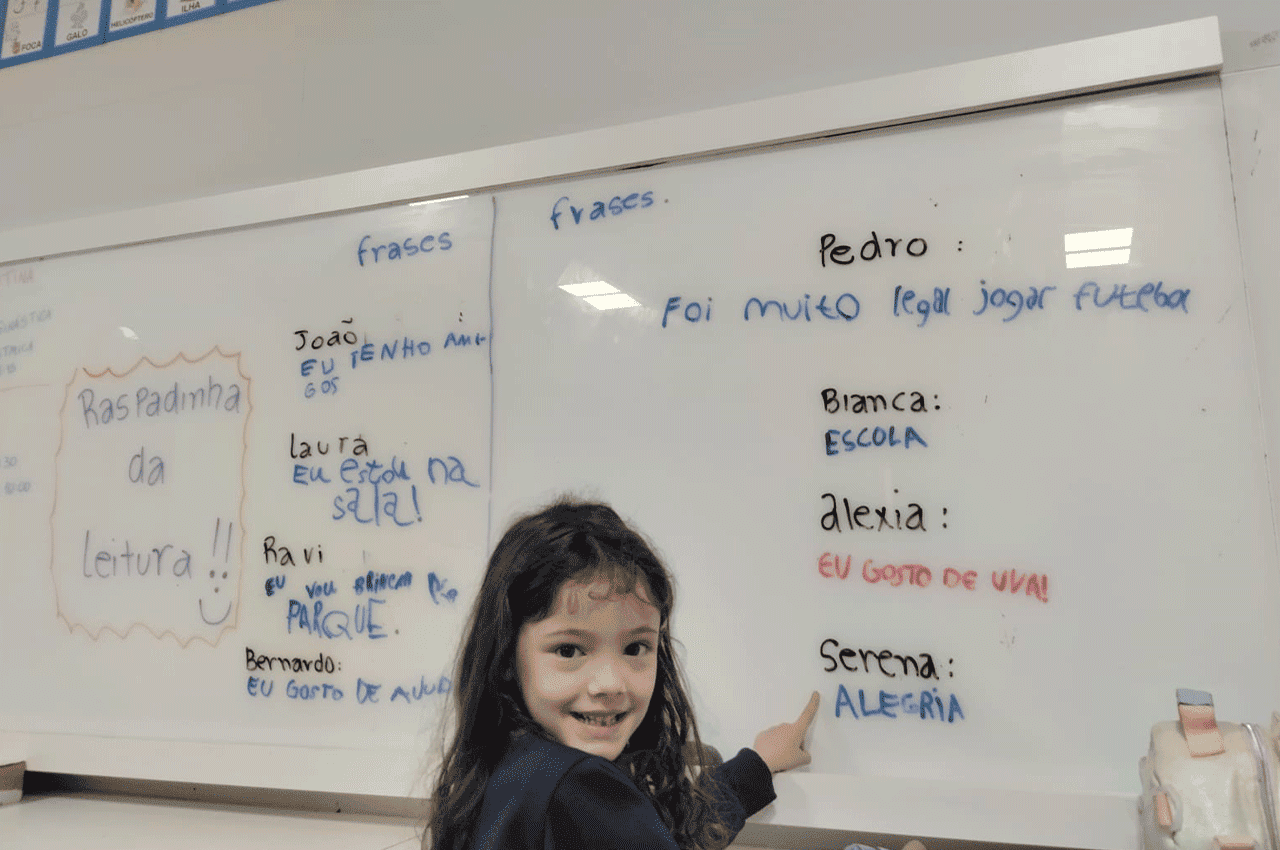 FOCA
GALO
HELICÓPTERO
ILHA
frases
João :
EU TENHO AMI
GOS
laura
EU estou na
sala!
Ravi
EU VOU BRINCAR
PARQUE.
Bernardo:
EU GOSTO DE
Raspadinha
da
leitura!!
frases.
Pedro :
Foi muito legal jogar futebol
Bianca:
ESCOLA
alexia:
EU GOSTO DE UVA!
Serena:
ALEGRIA